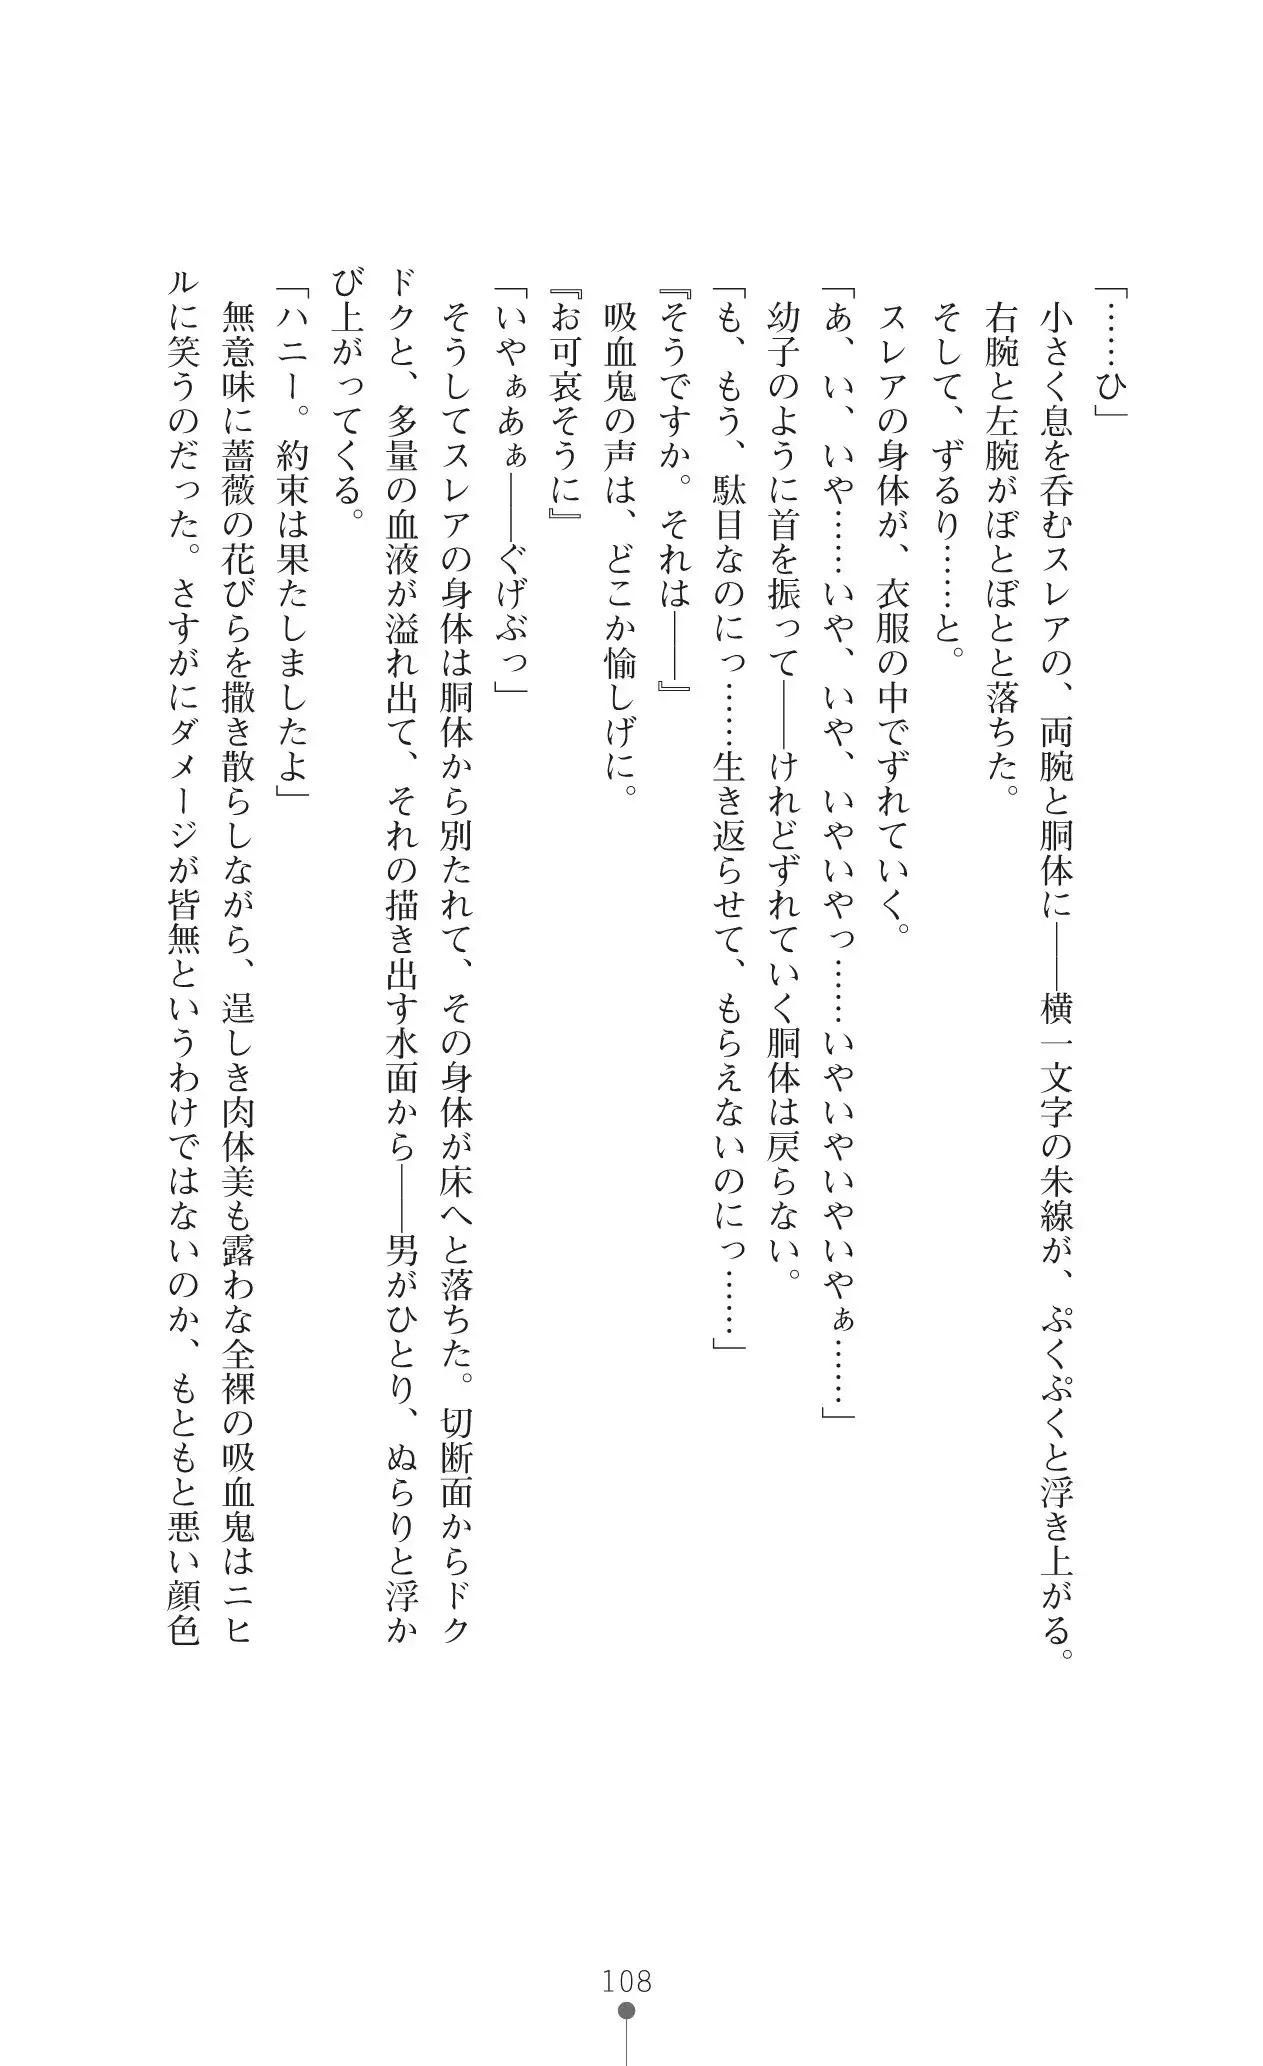 「……ひ」
　小さく息を呑むスレアの、両腕と胴体に――横一文字の朱線が、ぷくぷくと浮き上がる。
　右腕と左腕がぼとぼとと落ちた。
　そして、ずるり……と。
　スレアの身体が、衣服の中でずれていく。
「あ、い、いや……いや、いや、いやいやっ……いやいやいやいやぁ……」
　幼子のように首を振って――けれどずれていく胴体は戻らない。
「も、もう、駄目なのにっ……生き返らせて、もらえないのにっ……」
『そうですか。それは――』
　吸血鬼の声は、どこか愉しげに。
『お可哀そうに』
「いやぁあぁ――ぐげぶっ」
　そうしてスレアの身体は胴体から別たれて、その身体が床へと落ちた。切断面からドク
ドクと、多量の血液が溢れ出て、それの描き出す水面から――男がひとり、ぬらりと浮か
び上がってくる。
「ハニー。約束は果たしましたよ」
　無意味に薔薇の花びらを撒き散らしながら、逞しき肉体美も露わな全裸の吸血鬼はニヒ
ルに笑うのだった。さすがにダメージが皆無というわけではないのか、もともと悪い顔色
108